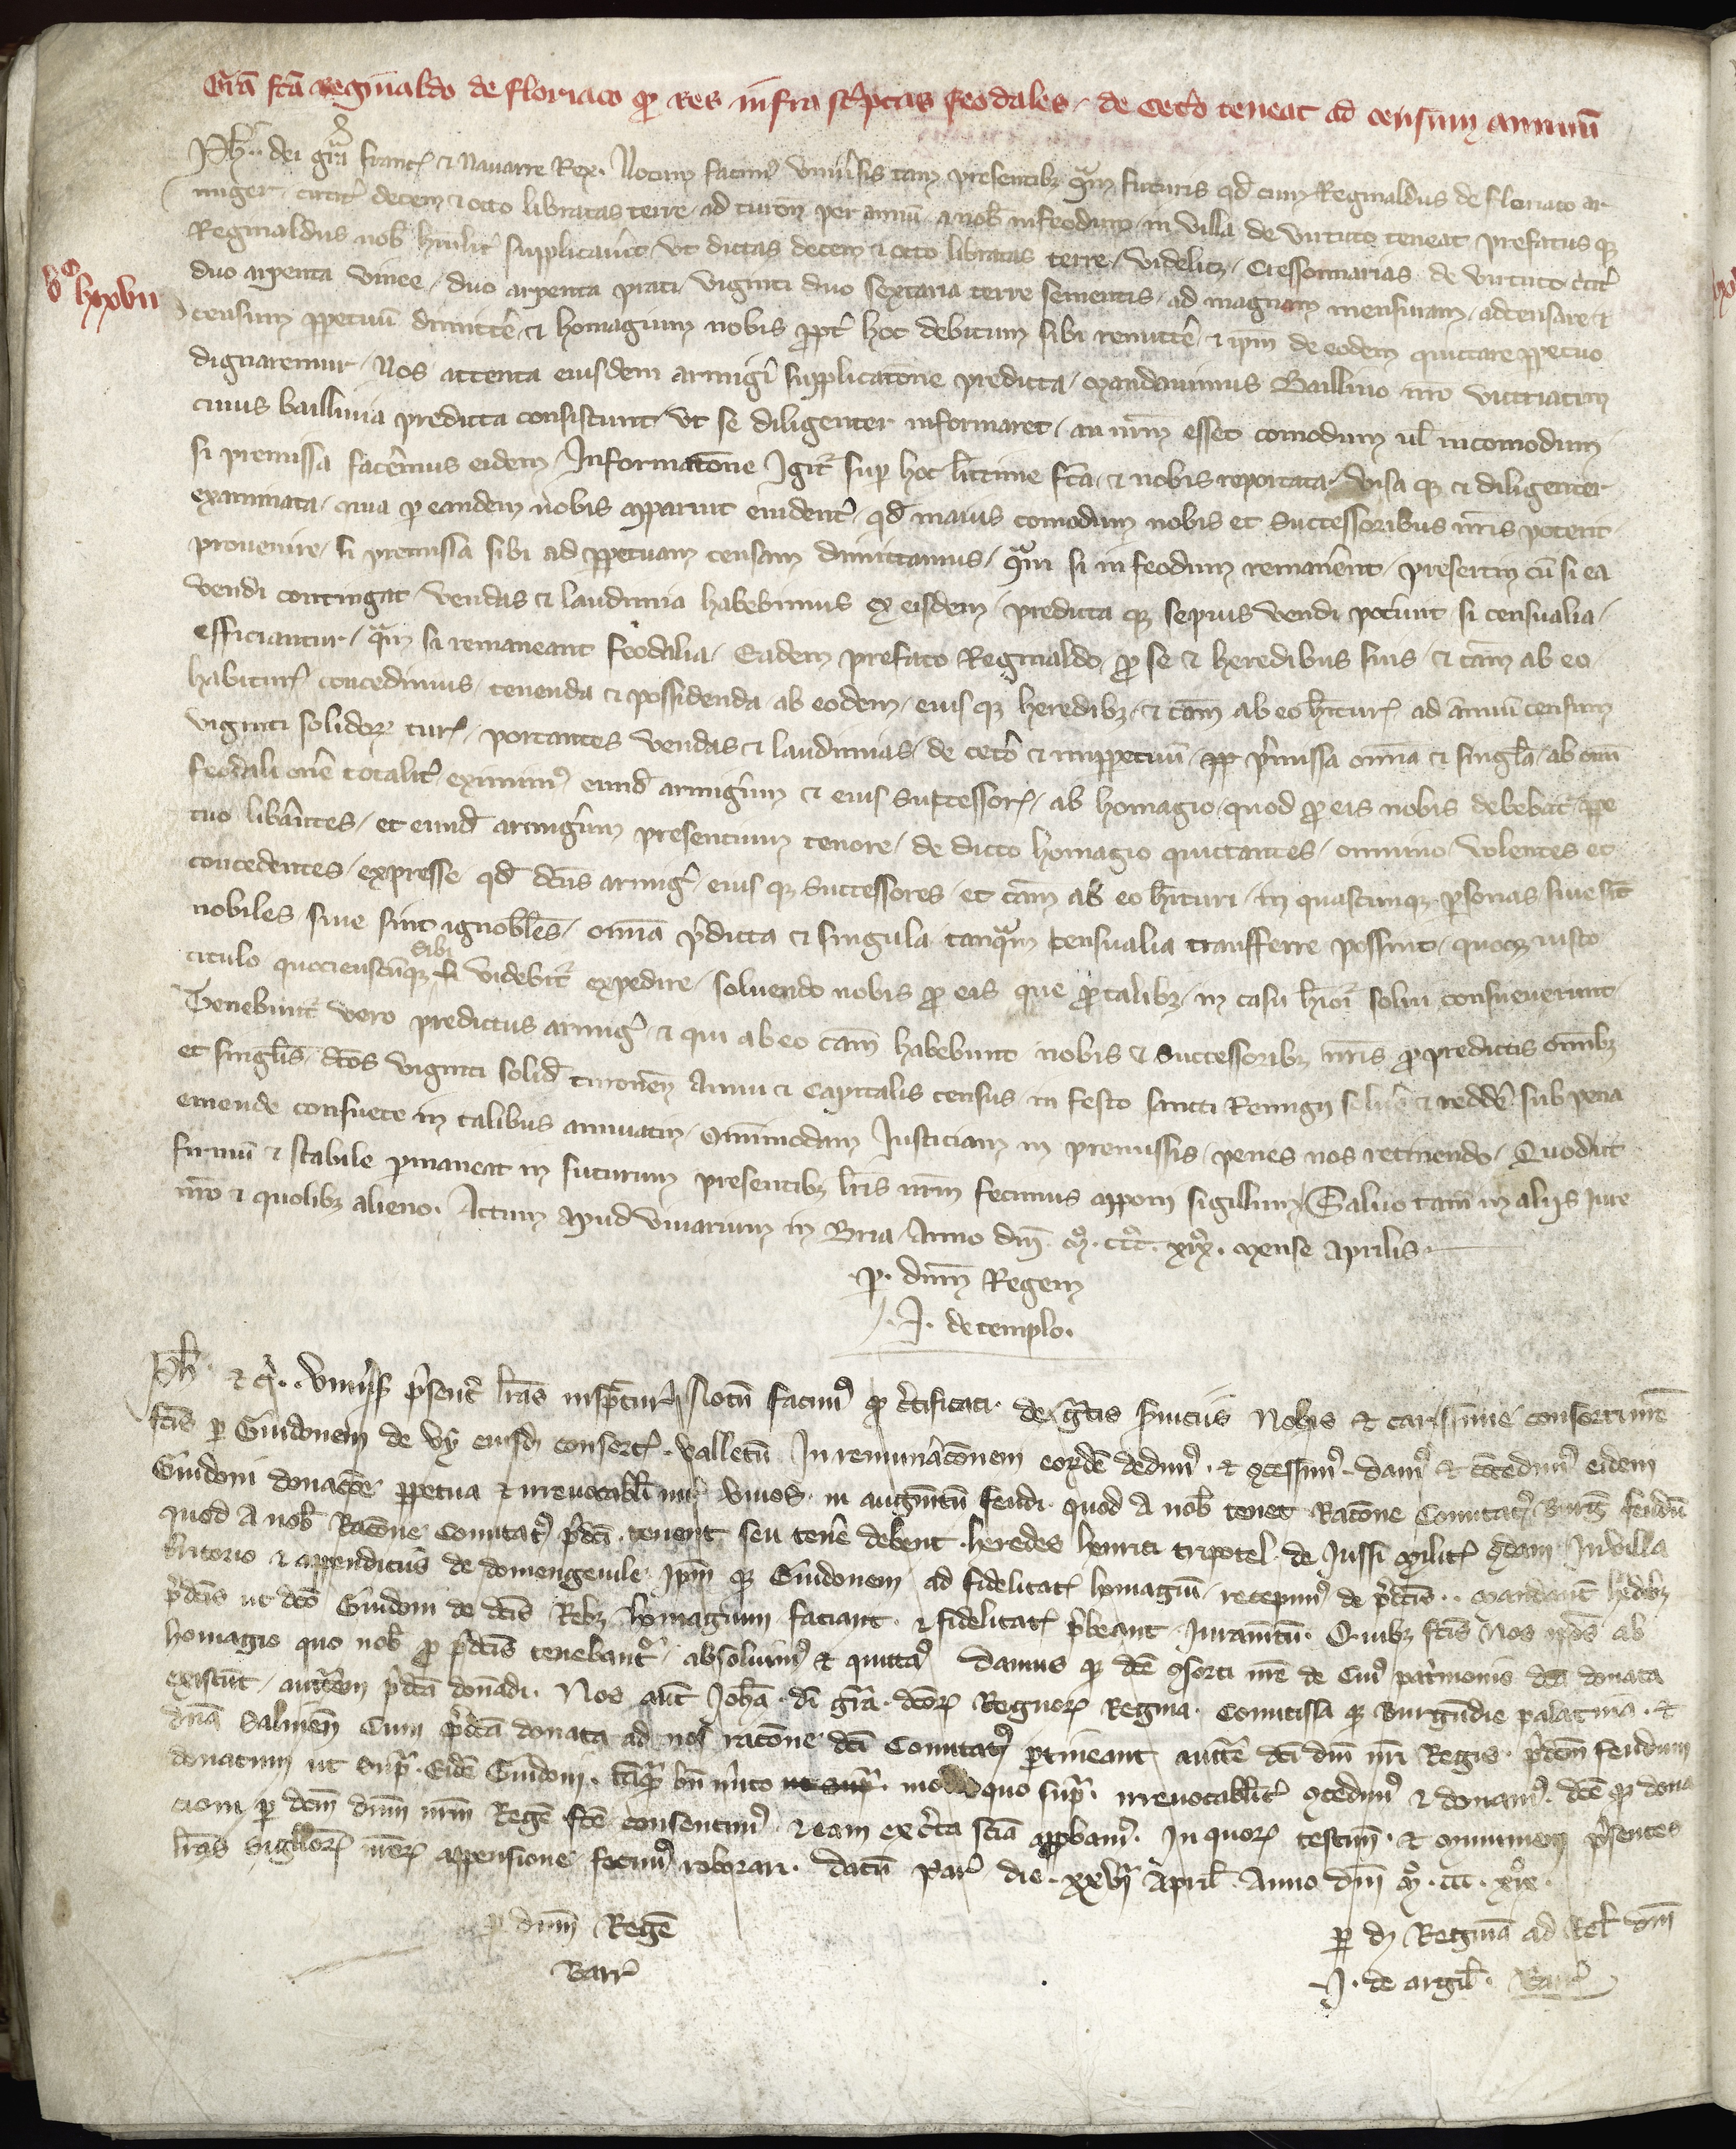 Gra fca Reginaldo de floriaco qd res infra scriptas feodales de cetero teneat ad censum annuum
Ph. dei gra franc et Navarre Rex. Notum facim universis tam presentibz qm futuris qd cum Reginaldus de floriaco ar
miger circit decem et octo libratas terre ad turon per annu a nob in feodum in villa de virtuto teneat prefatus qz
Reginaldus nob humilit supplicavit ut dictas decem et octo libratas terre videlicz Cressonnarias de virtuto circit
duo arpenta vinee duo arpenta prati viginti duo sextaria terre sementis ad magnam mensuram adcensare et
vo lxxvii
censum ppetuu dimitte et homagium nobis ppt hoc debitum sibi remitte et ipm de eodem quittare ppetuo
dignaremur Nos attenta eiusdem armigi supplicatone predicta mandavimus Baillivo nro vitriacen
cuius baillivia predicta consistunt ut se diligenter informaret an nrm esset comodum ul incomodum
si premissa facemus eidem Informatone Igit sup hoc lictime fca et nobis reportata visa qz et diligenter
examinata quia p eandem nobis apparuit evident qd maius comodum nobis et successoribus nris poterit
provenire si premissa sibi ad ppetuam censam dimittamus qm si in feodum remanent presertim cu si ea
vendi contingat vendas et laudimia habebimus ex eisdem predicta qz sepius vendi potunt si censualia
efficiantur qm si remaneant feodalia Eadem prefato Reginaldo pro se et heredibus suis et cam ab eo
habitur concedimus tenenda et possidenda ab eodem eius qz heredibz et cam ab eo hitur ad annuu censum
viginti solidor tur portantes vendas et laudimias de ceto et imppetuu pmissa omia et singla ab omi
feodali one totalit eximim eund armigum et eius successor ab homagio quod pro eis nobis debebat ppe
tuo libantes et eund armigum presentium tenore de dicto homagio quittantes omnino volentes et
concedentes expresse qd dcus armig eius qz successores et cam ab eo hituri in quascunqz psonas sive sit
nobiles sive sint ignobiles omia pdicta et singula tanqm censualia transferre possint quocqz iusto
titulo quocienscuqz sibi videbit expedire solvendo nobis pro eis que pro talibz in casu hioi solvi consueverunt
Tenebunt vero predictus armig et qui ab eo cam habebunt nobis et successoribz nris pro predictis omibz
et singlis dcos viginti solid turonen annui et capitalis census in festo sancti Remigii solve et redde sub pena
emende consuete in talibus annuatim omimodam Iusticiam in premissis penes nos retinendo Quod ut
firmu et stabile pmaneat in futurum presentibz lris nrm fecimus apponi sigillum Salvo tam in aliis iure
nro et quolibz alieno. Actum apud vivarium in Bria Anno dm M. ccc. xix. mense aprilis
p. dnm Regem
J. de templo.
Ph et c. univsis psent lras inspctur Notu facim qd ctificati de gratis sviciis nobis et carissime consorti nre
fcis p Guidonem de vy eiusd consort valletu In remunaconem eorde dedim et cessim dam et ccedim eidem
Guidoni donacoe ppetua et irrevocabili int vivos in augmtu feudi quod a nob tenet Racone Comitat Burg feudu
quod a nob Racone Comitat pdci tenent seu tene debent heredes henrici tripotel de Jussi milit qdam in villa
tritorio et appendiciis de domengevile ipm qz Guidonem ad fidelitat homagiu recepim de pdcis mandant hedibz
pdcis ut dco Guidoni de dcis Rebz homagium faciant et fidelitat pbeant iuramtu Quibz fcis nos ipos ab
homagio quo nob pro pdcis tenebant absolvim et quittam Damus qz dce sorti nre de cui patimonio dca donata
existut auctem pdca donadi. Nos aut Joha di gra dcor Regnor Regina Comitissa qz Burgudie palatina et
dna Salinen Cum pdca donata ad nos racone dci Comitat ptineant aucte dci dni nri Regis pdcm feudum
donatum ut supra Eide Guidoni tqz bn mito ut supr mo quo supra irrevocabilit cedim et donam dce qz dona
cioni p dcm dnm nrm Rege fce consentim et eam ex cta scia appbam In quor testim et munimen psentes
lras sigillor nror appensione fecim roborari. datu par die xxvii april Anno dni M. ccc. xix.
p dnm Rege
Barr
per d Reginam ad Rel dni
J. de argil. Barr